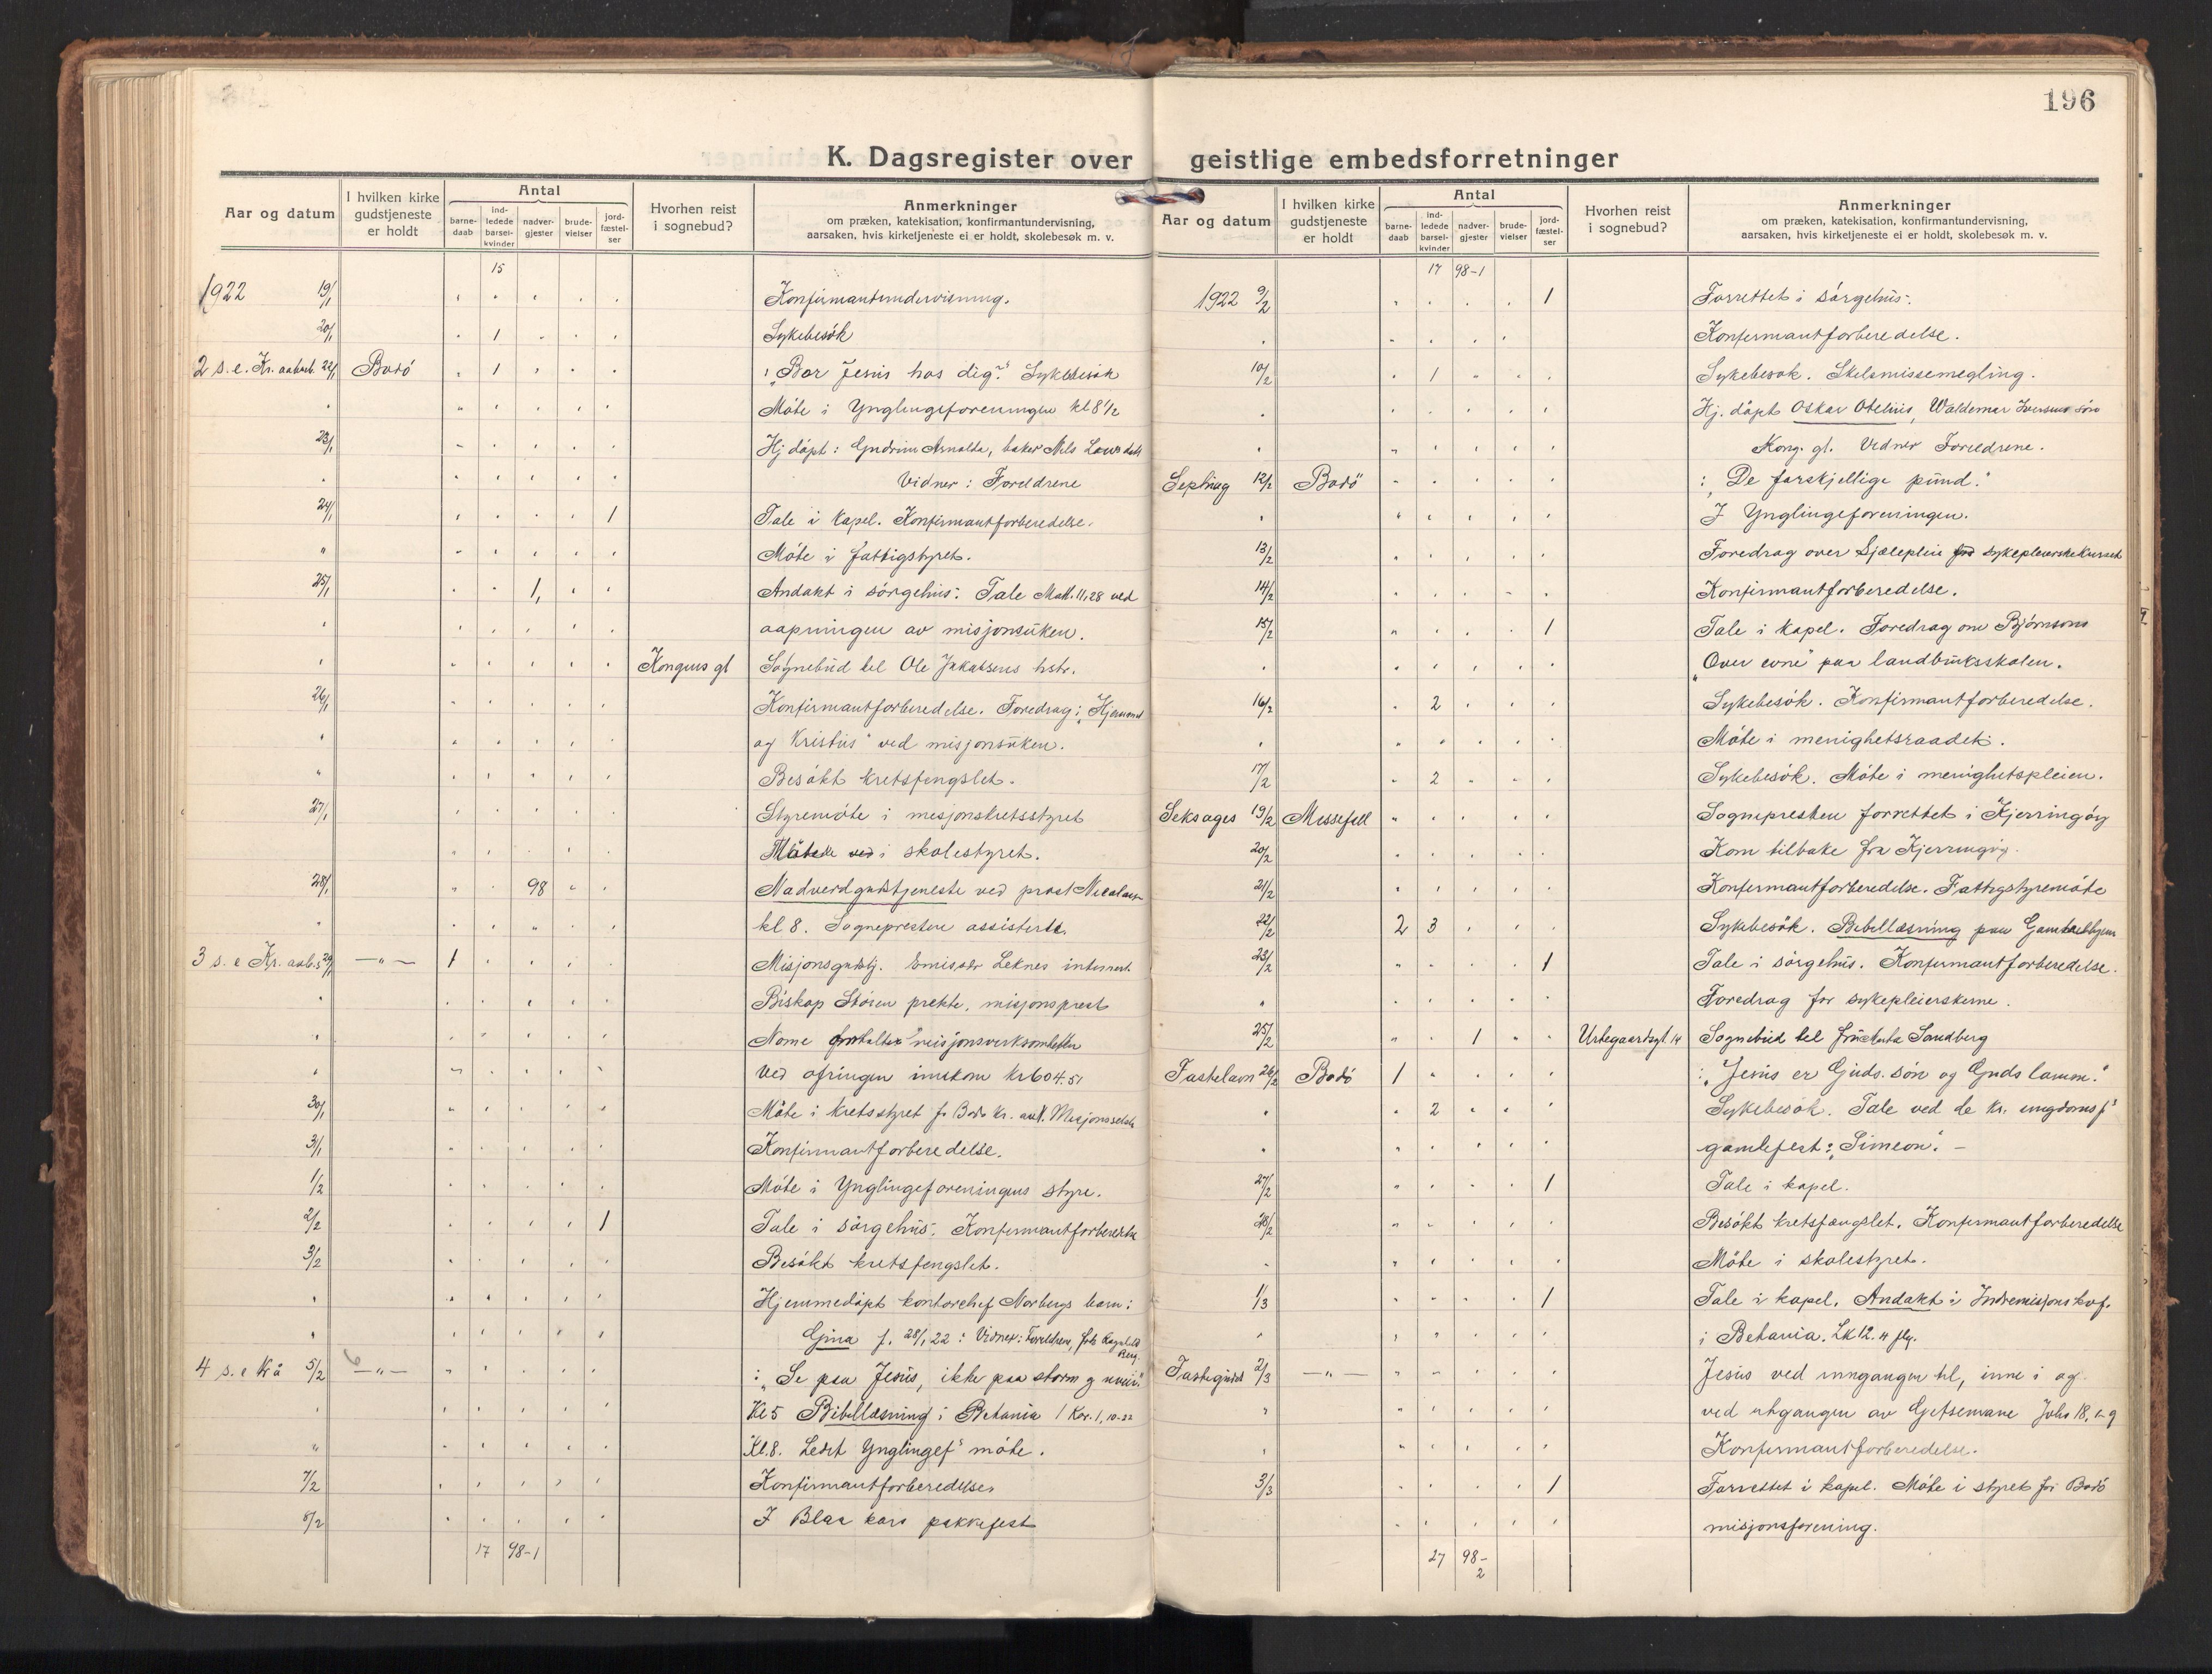 196
K. Dagsregister over geistlige embedsforretninger
Aar og datum
I hvilken kirke gudstjeneste er holdt
Antal
barne-daab
ind-ledede barsel-kvinder
nadver-gjester
brude-vielser
jord-fæstel-ser
Hvorhen reist i sognebud?
Anmerkninger
om præken, katekisation, konfirmantundervisning,
aarsaken, hvis kirketjeneste ei er holdt, skolebesøk m. v.
15
1922 19/1 Konfirmantundervisning.
20/1 1 Sykebesök
2 s. e. Kr. aabenb. 22/1 Bodö 1 : "Bor Jesus hos dig?" Sykebesök
Möte i Ynglingeforeningen kl 8 1/2
23/1 Hj. döpt: Gudrun Arnolda, baker Nils
Vidner: Foreldrene
24/1 1 Tale i kapel. Konfirmantforberedelse.
" Möte i fattigstyret.
25/1 1, Andakt i sörgehus. Tale Matt. 11,28 ved
aapningen av misjonsuken.
Kongens gt Sognebud til Ole Jakobsens hstr.
26/1 Konfirmantforberedelse. Foredrag: "
og Kristus" ved misjonsuken.
" Besökt kretsfengslet.
27/1 Styremöte i misjonskretsstyret
Möte i skolestyret.
28/1 98 Nadverdgudstjeneste ved prost
kl 8. Sognepresten assisterte.
3 s. e Kr. aab. 29/1 —"— 1 Misjonsgudstj. Emissær Leknes
Biskop Stören prekte, misjonsprest
Nome misjonsverksomheten
Ved ofringen innkom Kr 604.51
30/1 Möte i kretsstyret
31/1 Konfirmantforberedelse.
1/2 Möte i Ynglingeforeningens styre.
2/2 1 Tale i sörgehus. Konfirmantforberedelse
3/2 Besökt kretsfengslet.
Hjemmedöpt kontorchef Norbergs barn:
Gina f. 28/1 22: Vidner: Foreldrene, Berg.
4 s. e Kr å 5/2 —"— : "Se paa Jesus, ikke paa storm og
Kl 5 Bibellæsning i Betania 1 Kor. 1, 10-22
" Kl. 8. Ledet Ynglingef^s möte.
7/2 Konfirmantforberedelse
8/2 I Blaa kors pakkefest
17 98-1
Aar og datum
I hvilken kirke gudstjeneste er holdt
Antal
barne-daab
ind-ledede barsel-kvinder
nadver-gjester
brude-vielser
jord-fæstel-ser
Hvorhen reist i sognebud?
Anmerkninger
om præken, katekisation, konfirmantundervisning,
aarsaken, hvis kirketjeneste ei er holdt, skolebesøk m. v.
17 98-1
1922 9/2 1 Forrettet i sörgehus.
Konfirmantforberedelse.
10/2 1 Sykebesök. Skilsmissemegling.
Hj. döpt Oskar Otelius, Waldemar Iversens sön
Kong. gt. Vidner Foreldrene.
Septuag 12/2 Bodö : "De forskjellige pund."
I Ynglingeforeningen.
13/2 Foredrag over Sjælepleie for sykepleierskekurset
14/2 Konfirmantforberedelse.
15/2 1 Tale i kapel. Foredrag om Björnsons
"Over evne" paa landbruksskolen.
16/2 2 Sykebesök. Konfirmantforberedelse.
Möte i menighetsraadet.
17/2 2 Sykebesök. Möte i menighetspleien.
Seksages 19/2 Messefell Sognepresten forrettet i Kjerringöy
20/2 Kom tilbake fra Kjerringöy.
21/2 Konfirmantforberedelse. Fattigstyremöte
22/2 2 3 Sykebesök. Bibellæsning paa Gamlehjem
23/2 1 Tale i sörgehus. Konfirmantforberedelse.
Foredrag for sykepleierskerne.
25/2 1 Urtegaardsgt 14 Sognebud til fru Sandberg
Fastelavn 26/2 Bodö 1 : "Jesus er Guds sön og Guds lamm."
2 Sykebesök. Tale ved de kr. ungdomsf^s
gamlefest: "Simeon". —
27/2 1 Tale i kapel.
28/2 Besökt kretsfængslet. Konfirmantforberedelse
Möte i skolestyret.
1/3 1 Tale i kapel. Andakt i Indremisjons
i Betania. Lk 12. 4 flg.
Fastegudst 2/3 —"— Jesus ved inngangen til, inne i og
ved utgangen av Getsemane Joh 18, 1-9
Konfirmantforberedelse.
3/3 1 Forrettet i kapel. Möte i styret for Bodö
misjonsforening.
27 98-2